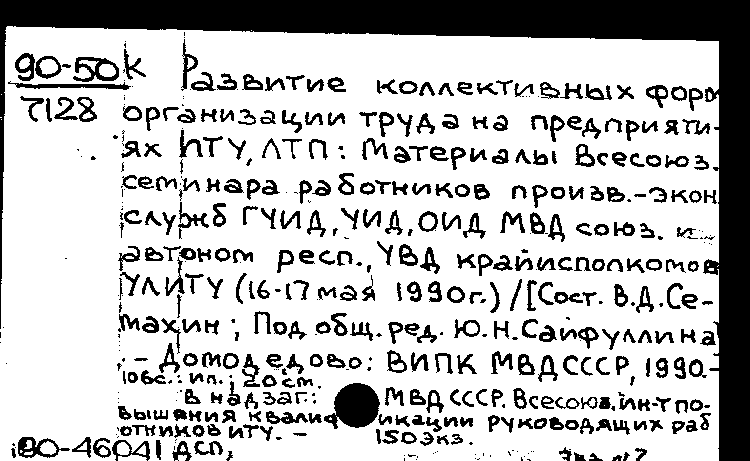 90-50к Развитие коллективных форм
7128 организации труда на предприяти-
ях ИТУ, ЛТП: Материалы Всесоюз.
семинара работников произв.-экон
служб ГУИД, УИД, ОИД МВД союз. и
автоном респ., УВД крайисполкомов
УЛИТУ (16-17 мая 1990г.) / [Сост. В.Д.Се-
махин; Под общ. ред. Ю.Н.Сайфуллина
. - Домодедово: ВИПК МВД СССР, 1990.-
106с.: ил.; 20 см.
В надзаг: МВД СССР. Всесоюз. ин-т по-
вышения квалификации руководящих раб
отников ИТУ. - 150 экз.
90-46041 дсп,